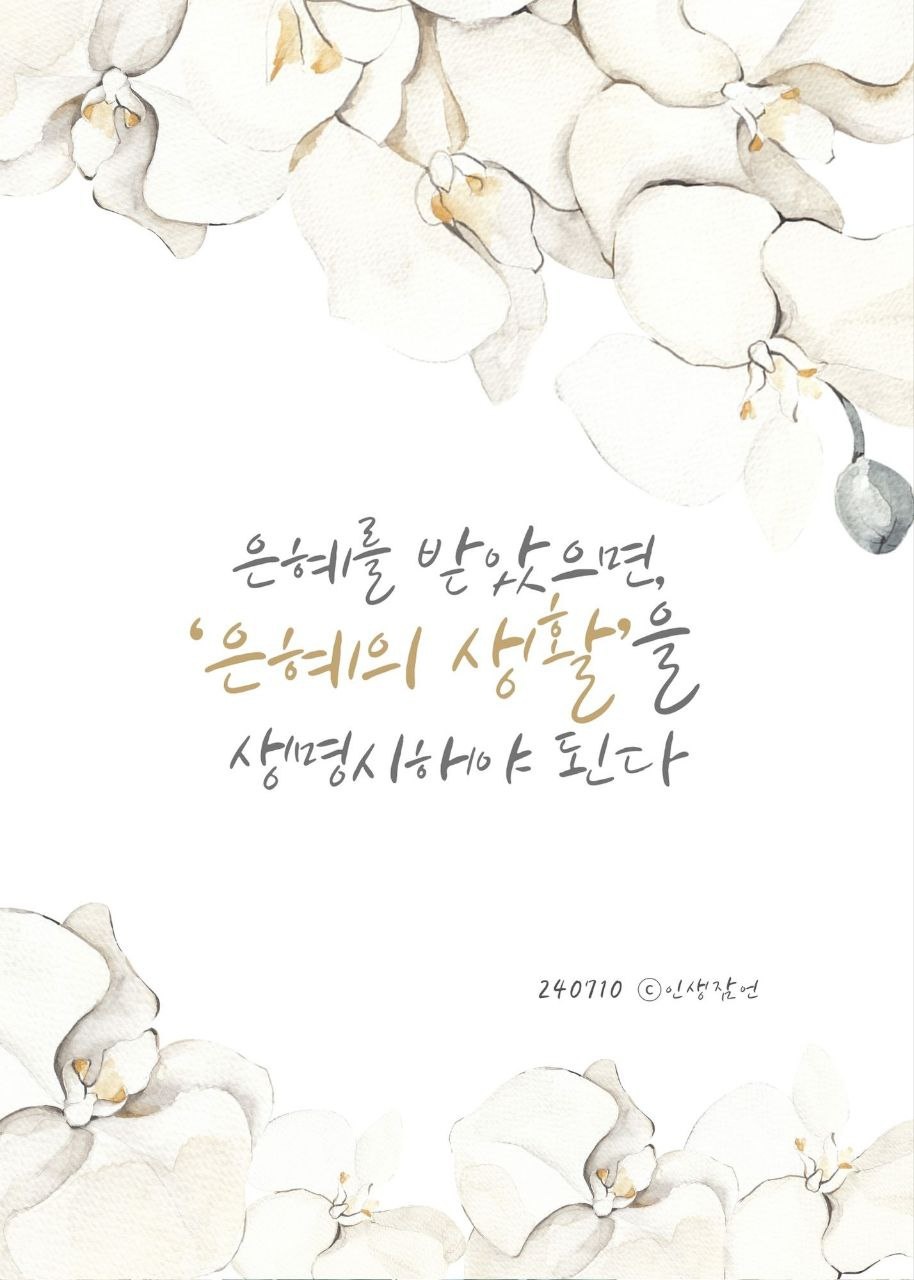 은혜를 받았으면,
‘은혜의 생활’을
생명시해야 된다
240710 ⓒ인생잠언